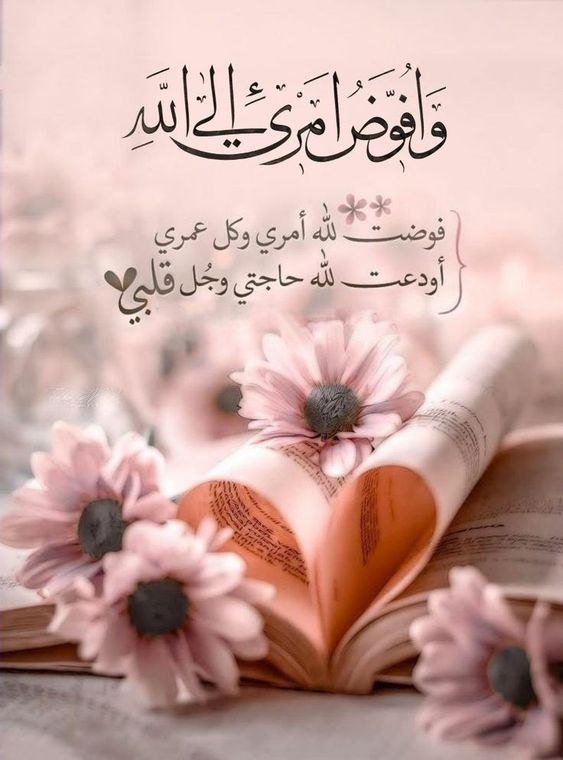 وَأُفَوِّضُ أَمْرِي إِلَى اللَّهِ
فوضت لله أمري وكل عمري
أودعت لله حاجتي وجُل قلبي